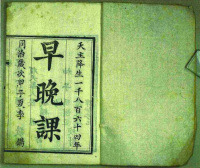 天主降生一千八百六十四年
早晚課
同治歲次甲子夏季